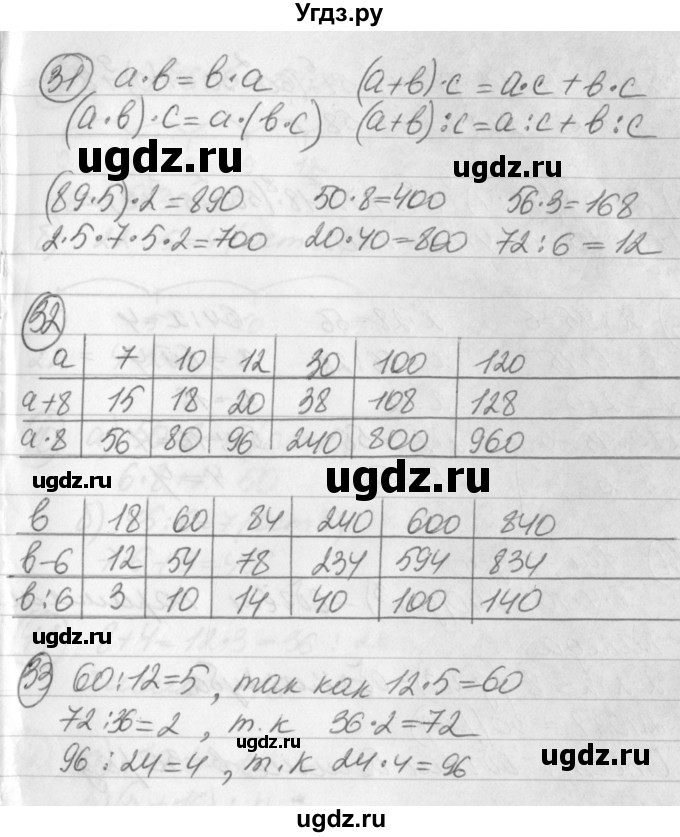 Угдз.ру
31 a·b=b·a (a+b)·c=a·c+b·c
(a·b)·c=a·(b·c) (a+b):c=a:c+b:c
ugdz.ru ugdz.ru
(89·5)·2=890 50·8=400 56·3=168
2·5·7·5·2=700 20·40=800 72:6=12
32
a 7 10 12 30 100 120
a+8 15 18 20 38 108 128
a·8 56 80 96 240 800 960
ugdz.ru ugdz.ru
b 18 60 84 240 600 840
b-6 12 54 78 234 594 834
b:6 3 10 14 40 100 140
ugdz.ru
33 60:12=5, так как 12·5=60
72:36=2, т.к 36·2=72
ugdz.ru ugdz.ru
96:24=4, т.к 24·4=96
ugdz.ru ugdz.ru